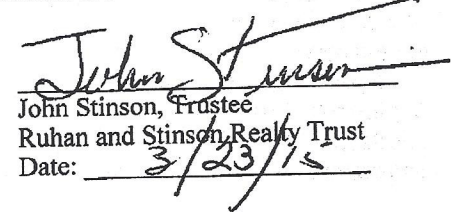 John Stinson
John Stinson, Trustee
Ruhan and Stinson Realty Trust
Date: 3/23/15